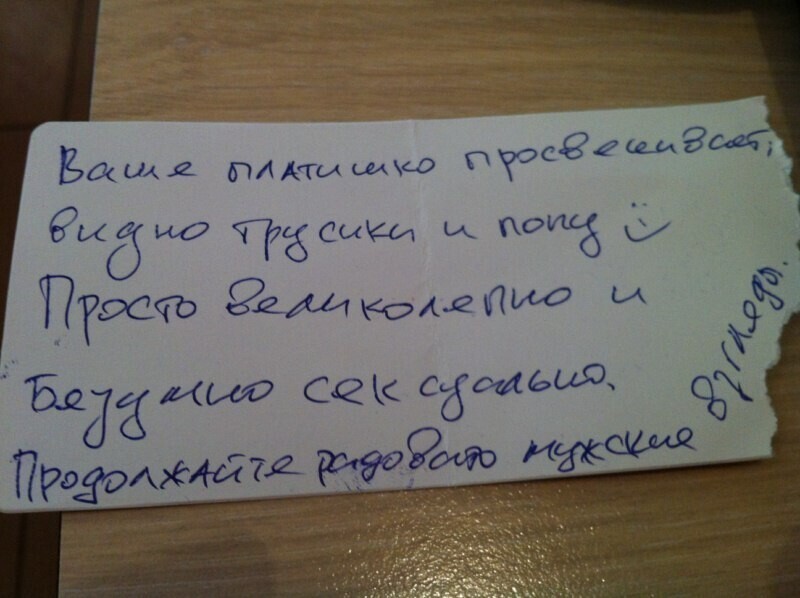 Ваше платишко просвечивает,
видно трусики и попу :)
Просто великолепно и
Безумно сексуально.
Продолжайте радовать мужские
взгляды.